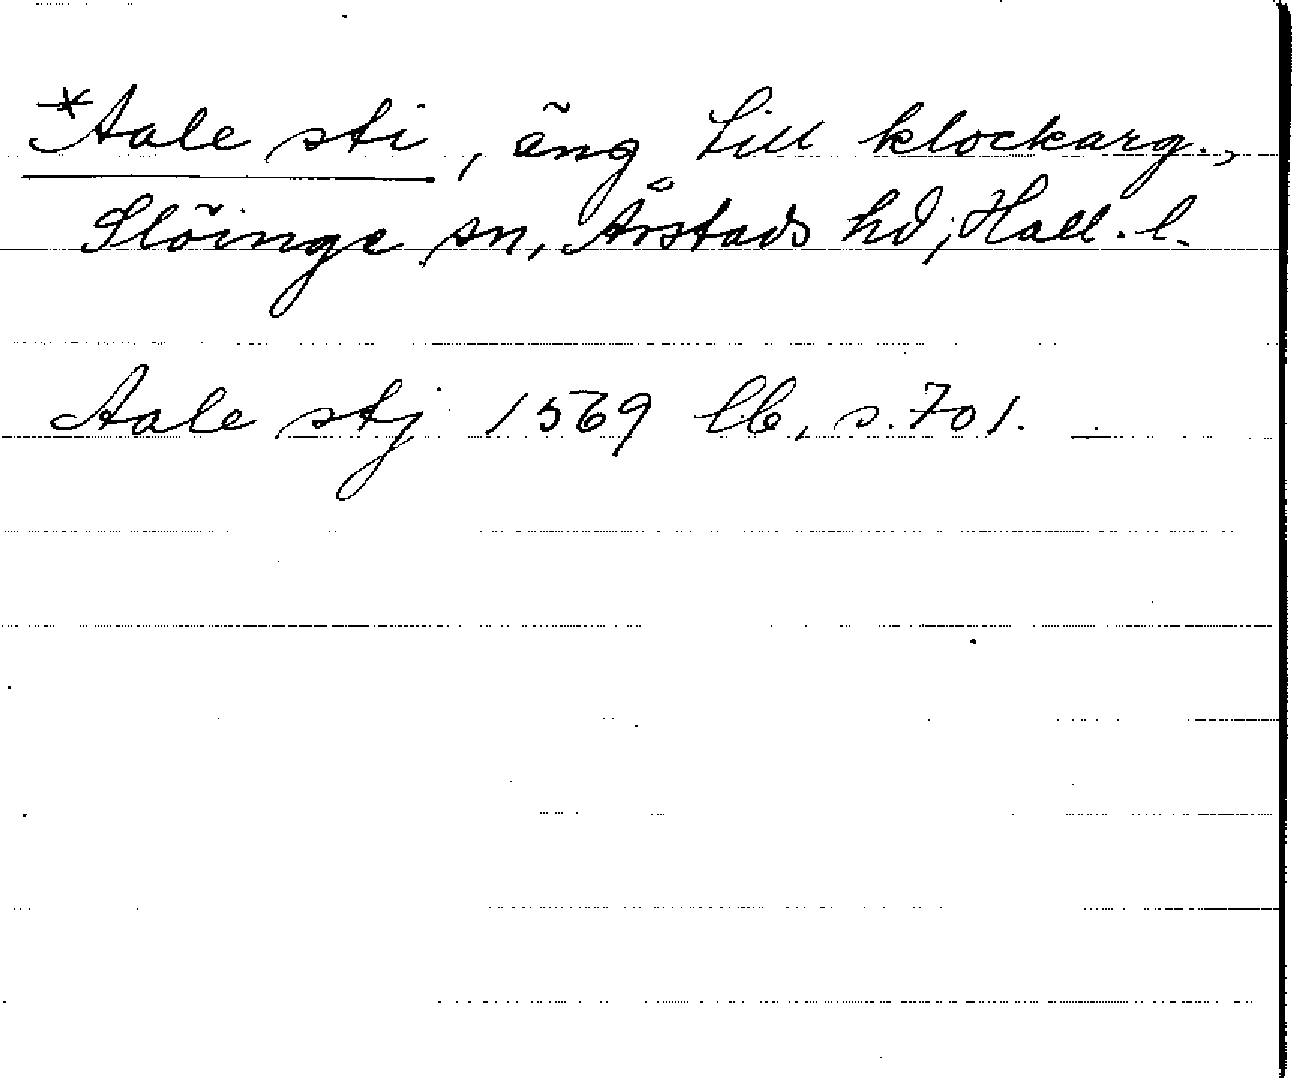 *Aale sti, äng till klockarg.,
Slöinge sn, Årstads hd, Hall. l.
Aale stj 1569 lb, s. 701.